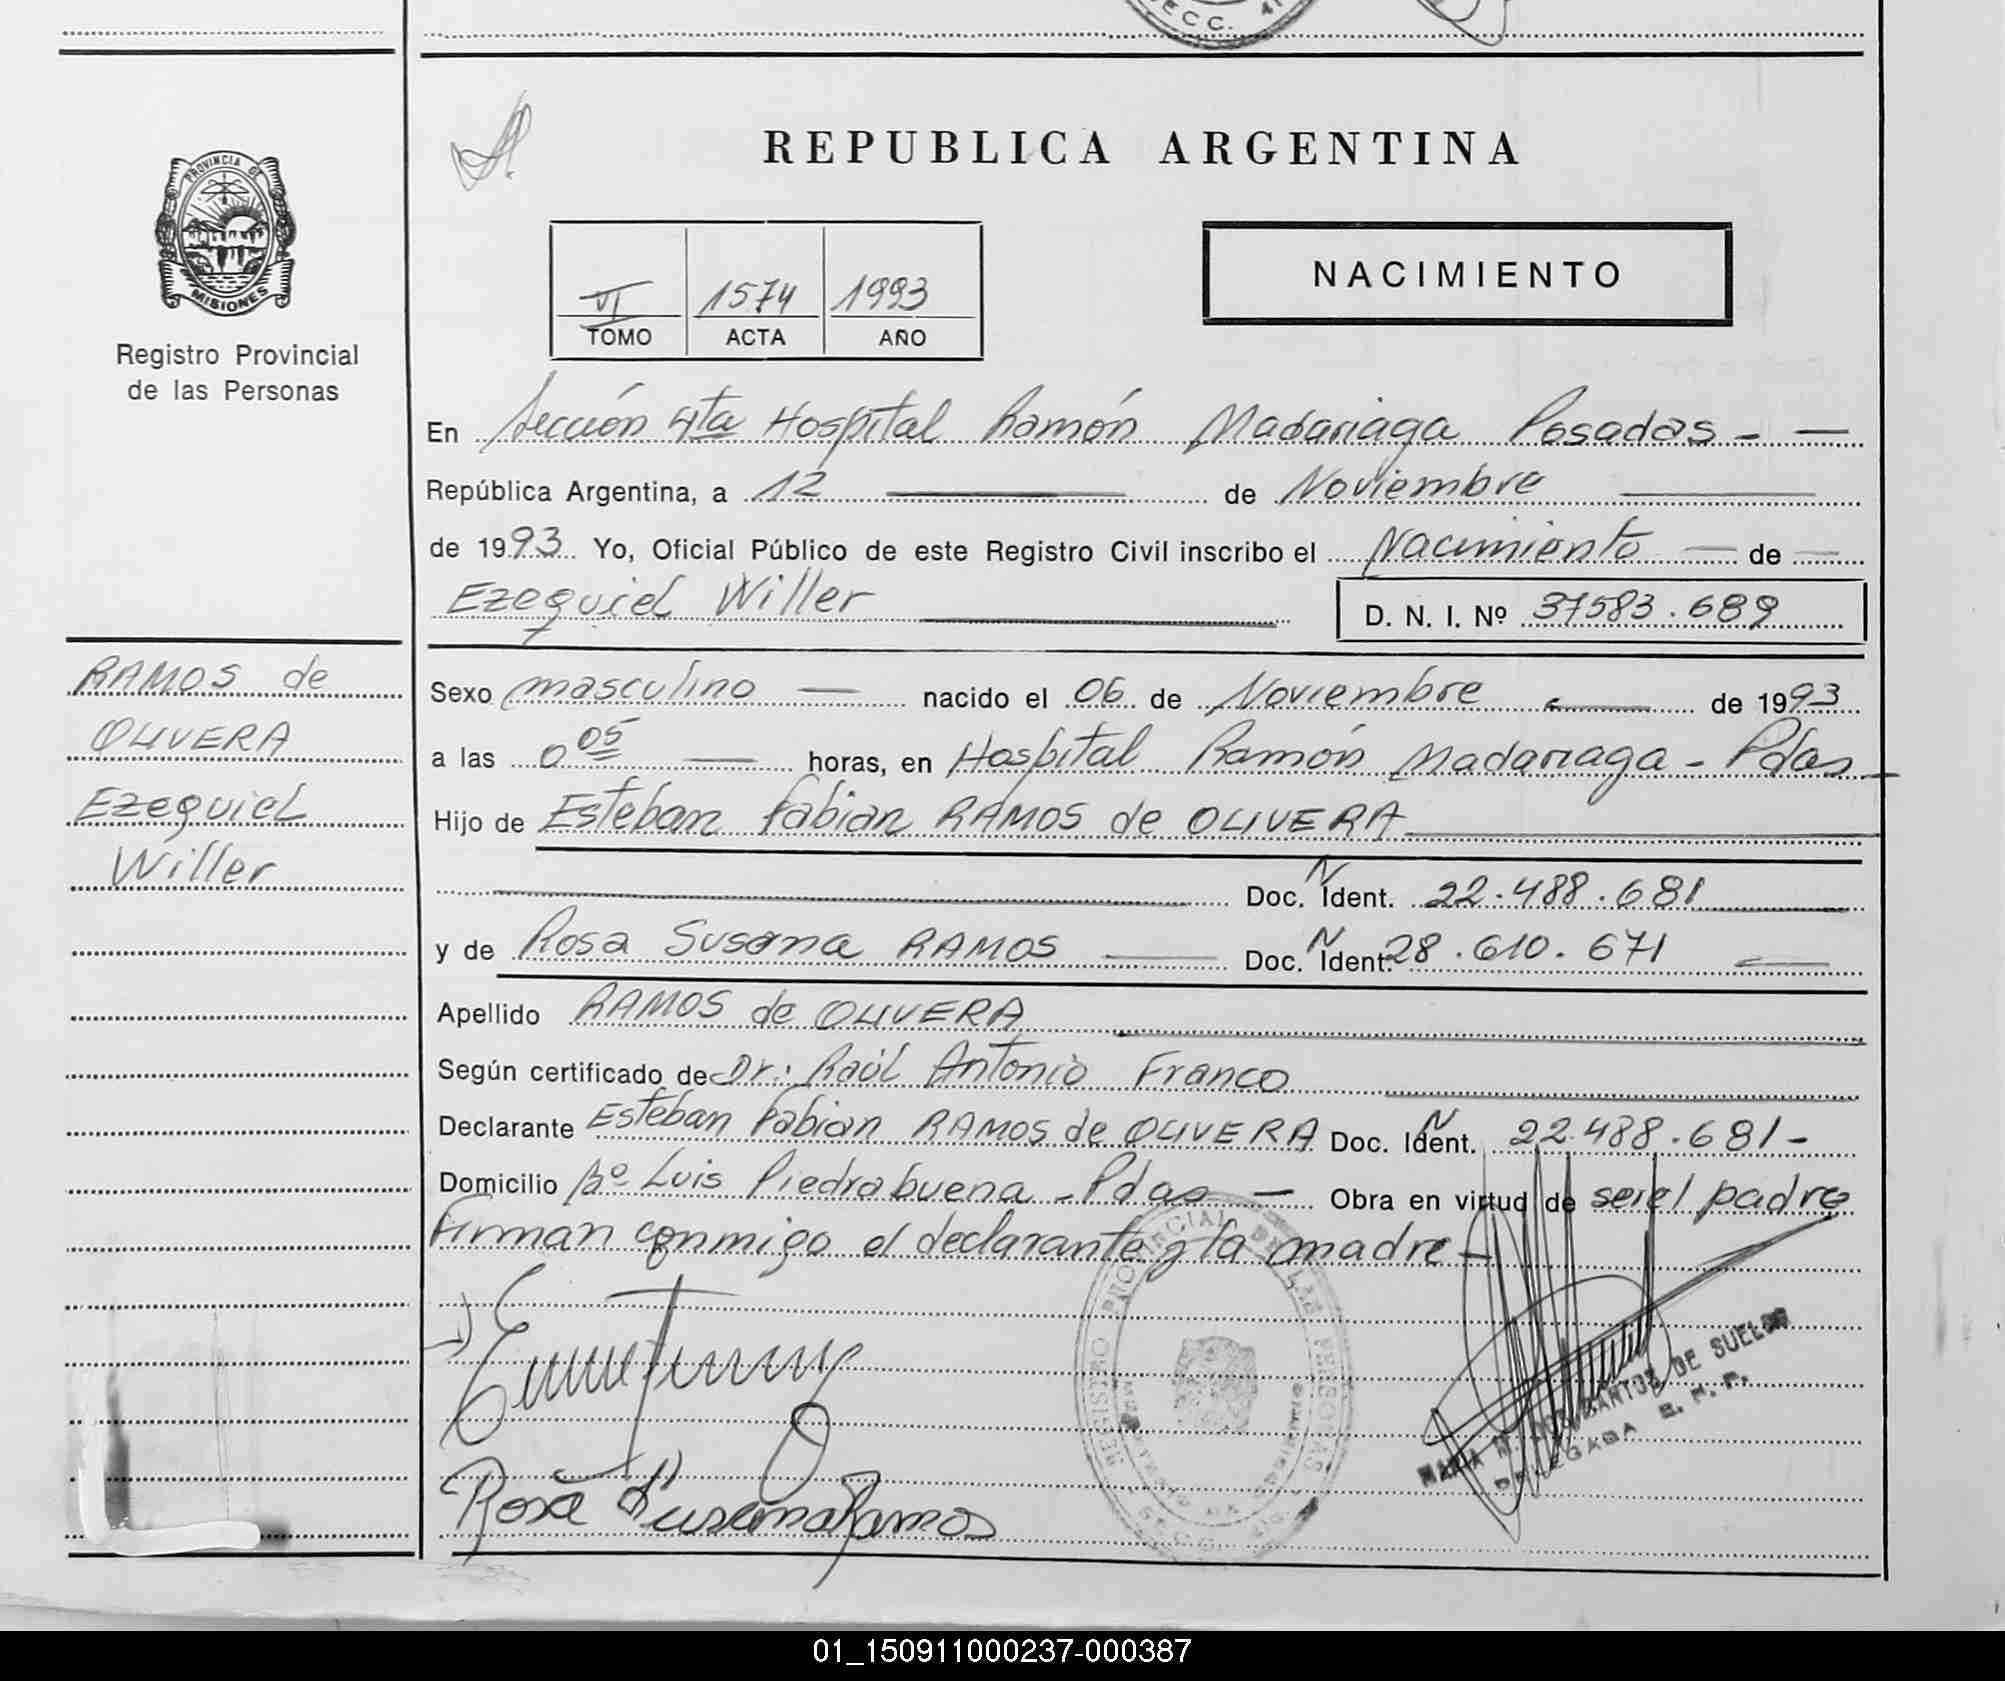 ECC.
PROVINCIA DE
MISIONES
Registro Provincial
de las Personas
REPUBLICA ARGENTINA
VI 1574 1993
TOMO ACTA AÑO
NACIMIENTO
En Sección 4ta Hospital Ramón Madariaga Posadas - —
República Argentina, a 12 — de Noviembre —
de 1993 Yo, Oficial Público de este Registro Civil inscribo el Nacimiento — de —
Ezequiel Willer — D. N. I. Nº 37583.689
RAMOS de
OLIVERA
Ezequiel
Willer
Sexo masculino — nacido el 06 de Noviembre — de 1993
a las 0 05 — horas, en Hospital Ramón Madariaga - Pdas -
Hijo de Esteban Fabian RAMOS de OLIVERA —
— Doc. N Ident. 22.488.681 —
y de Rosa Susana RAMOS — Doc. N Ident. 28.610.671 —
Apellido RAMOS de OLIVERA —
Según certificado de Dr.: Raúl Antonio Franco —
Declarante Esteban Fabian RAMOS de OLIVERA Doc. N Ident. 22.488.681 -
Domicilio Bº Luis Piedrabuena - Pdas — Obra en virtud de ser el padre
Firman conmigo el declarante y la madre -
REGISTRO PROVINCIAL DE LAS PERSONAS
DOS SANTOS DE SUELOS
DELEGADA R. P. P.
Rosa Susana Ramos
01_150911000237-000387